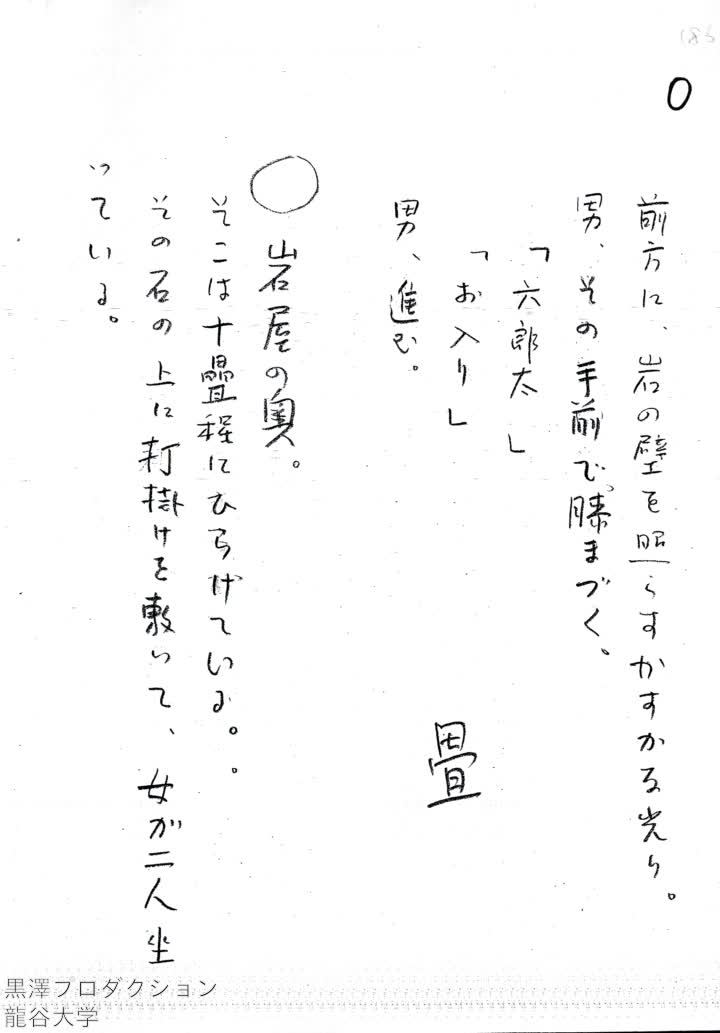 0
前方に、岩の壁を照らすかすかな光り。
男、その手前で、膝まづく。
「六郎太」
「お入り」
男、進む。
畳
○ 岩屋の奥。
そこは十疊程にひらけている。
その石の上に打掛けを敷いて、女が二人坐
っている。
黒澤プロダクション
龍谷大学